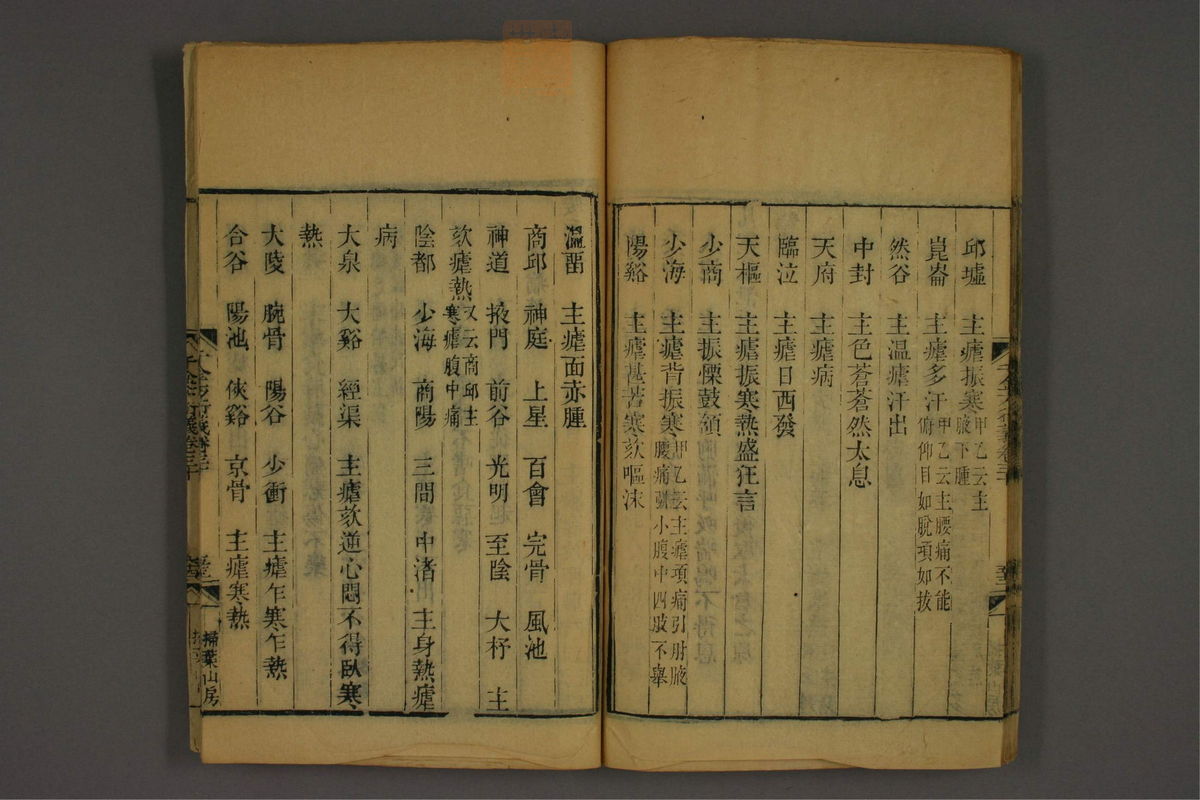 邱墟　主瘧振寒甲乙云主腋下腫
崑崙　主瘧多汗甲乙云主腰痛不能俯仰目如脫項如拔
然谷　主温瘧汗出
中封　主色蒼蒼然太息
天府　主瘧病
臨泣　主瘧日西發
天樞　主瘧振寒熱盛狂言
少商　主振慄鼓頷
少海　主瘧背振寒甲乙云主瘧項痛引肘腋腰痛引小腹中四肢不舉
陽谿　主瘧甚苦寒欬嘔沫
溫畱　主瘧面赤腫
商邱　神庭　上星　百會　完骨　風池
神道　掖門　前谷　光明　至陰　大杼　主
欬瘧熱又云商邱主寒瘧腹中痛
陰都　少海　商陽　三間　中渚　主身熱瘧
病
大泉　大谿　經渠　主瘧欬逆心悶不得臥寒
熱
大陵　腕骨　陽谷　少衝　主瘧乍寒乍熱
合谷　陽池　俠谿　京骨　主瘧寒熱
千金方衍義卷三十
掃葉山房